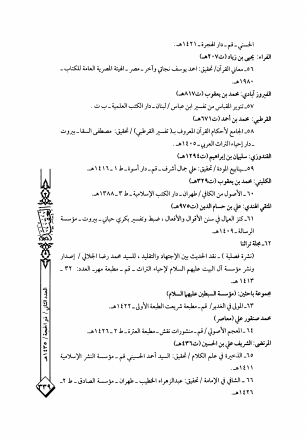 الحسني ـ قم ـ دار الهجرة ـ ١٤٢١هـ.
الفراء: يحيى بن زياد (ت٢٠٧هـ)
٥٦ـ معاني القرآن/ تحقيق: احمد يوسف نجاتي وآخر ـ مصر ـ الهيئة المصرية العامة للكتاب ـ
١٩٨٠هـ.
الفيروز آبادي: محمد بن يعقوب (ت٨١٧هـ)
٥٧ـ تنوير المقباس من تفسير ابن عباس/ لبنان ـ دار الكتب العلمية ـ ب ت.
القرطبي: محمد بن أحمد (ت٦٧١هـ)
٥٨ـ الجامع لأحكام القرآن المعروف بـ(تفسير القرطبي)/ تحقيق: مصطفى السقا ـ بيروت
ـ دار إحياء التراث العربي ـ ١٤٠٥هـ.
القندوزي: سليمان بن إبراهيم (ت١٢٩٤هـ)
٥٩ـ ينابيع المودة/ تحقيق: علي جمال أشرف ـ قم ـ دار أسوة ـ ط١ ـ ١٤١٦هـ.
الكليني: محمد بن يعقوب (ت٣٢٩هـ)
٦٠ـ الأصول من الكافي/ طهران ـ دار الكتب الإسلامية ـ ط٣ ـ ١٣٨٨هـ.
المتقي الهندي: علي بن حسام الدين (ت٩٧٥هـ)
٦١ـ كنز العمال في سنن الأقوال والأفعال، ضبط وتفسير بكري حياني ـ بيروت ـ مؤسسة
الرسالة ـ ١٤٠٩هـ.
٦٢ـ مجلة تراثنا
(نشرة فصلية)ـ نقد الحديث بين الاجتهاد والتقليد، للسيد محمد رضا الجلالي/ إصدار
ونشر مؤسسة آل البيت عليهم السلام لإحياء التراث ـ قم ـ مطبعة مهر، العدد: ٣٢ ـ
١٤١٣هـ
مجموعة باحثين: (مؤسسة السبطين عليهما السلام)
٦٣ـ المولى في الغدير/ قم ـ مطبعة شريعت الطبعة الأولى ـ ١٤٢٢هـ.
محمد صنقور علي (معاصر)
٦٤ـ المعجم الأصولي/ قم ـ منشورات نقش ـ مطبعة العترة ـ ط٢ ـ ١٤٢٦هـ.
المرتضى: الشريف علي بن الحسين (ت٤٣٦هـ)
٦٥ـ الذخيرة في علم الكلام/ تحقيق: السيد أحمد الحسيني قم ـ مؤسسة النشر الإسلامية
١٤١١هـ.
٦٦ـ الشافي في الإمامة/ تحقيق: عبدالزهراء الخطيب ـ طهران ـ مؤسسة الصادق ـ ط٢ـ
١٤٢٦هـ.
العدد الثاني / ذو الحجة / ١٤٣٥هـ
٣٣٩